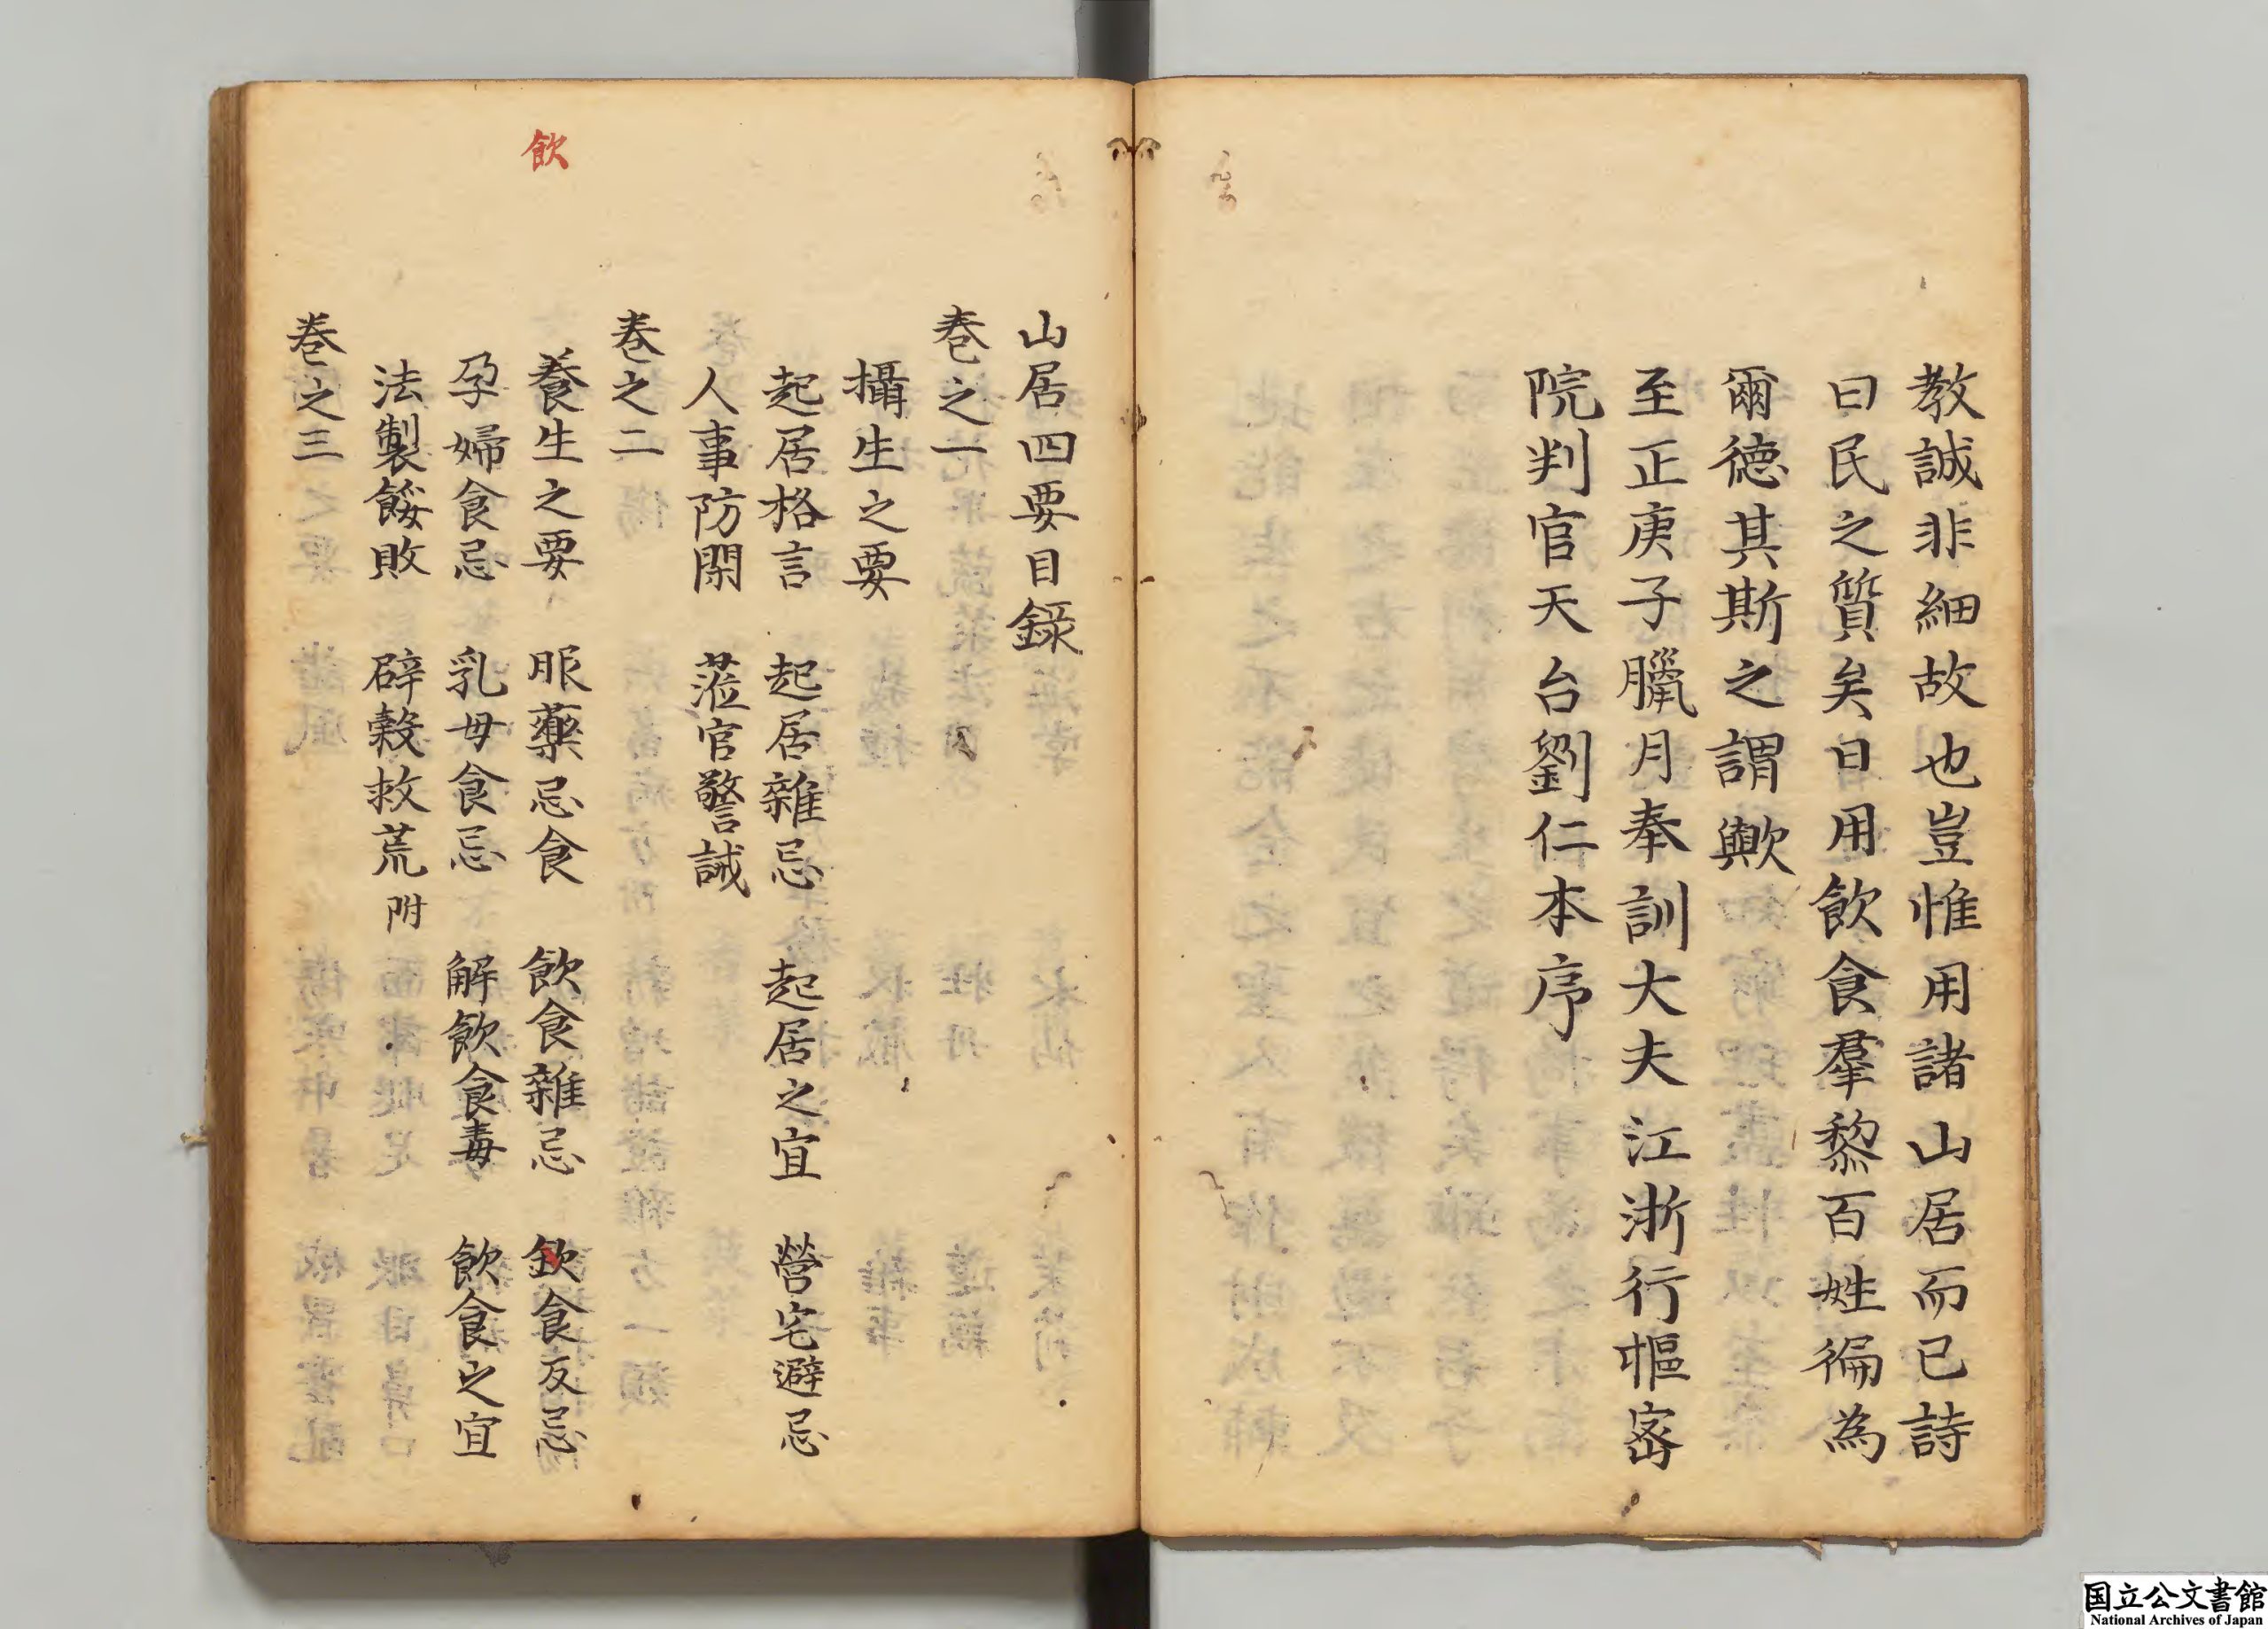 教誠非細故也豈惟用諸山居而已詩
曰民之質矣日用飲食羣黎百姓徧為
爾德其斯之謂歟
至正庚子臘月奉訓大夫江浙行樞密
院判官天台劉仁本序
山居四要目錄
卷之一
攝生之要
起居格言 起居雜忌 起居之宜 營宅避忌
人事防閑 蒞官警誡
卷之二
養生之要 服藥忌食 飲食雜忌 欽食反忌
飲
孕婦食忌 乳母食忌 解飲食毒 飲食之宜
法製餒敗 辟穀救荒附
卷之三
国立公文書館
National Archives of Japan